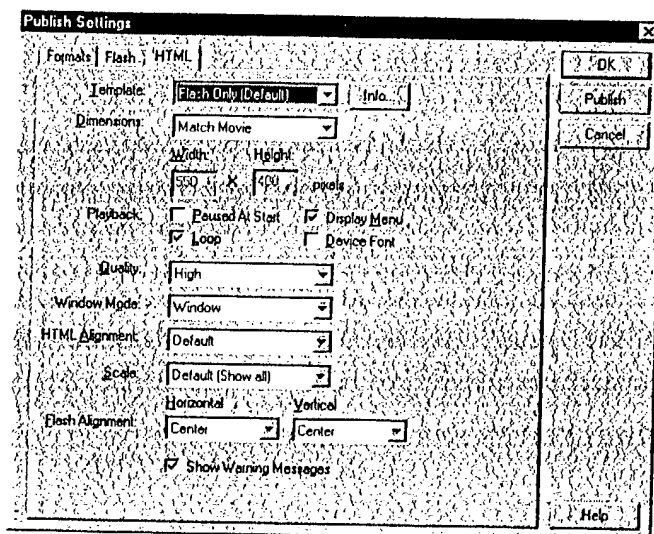 Publish Settings
Formats Flash HTML
OK
Template: Flash Only (Default) Info...
Publish
Dimensions: Match Movie
Cancel
Width: Height:
550 X 400 pixels
Playback: Paused At Start Display Menu
Loop Device Font
Quality: High
Window Mode: Window
HTML Alignment: Default
Scale: Default (Show all)
Horizontal Vertical
Flash Alignment: Center Center
Show Warning Messages
Help